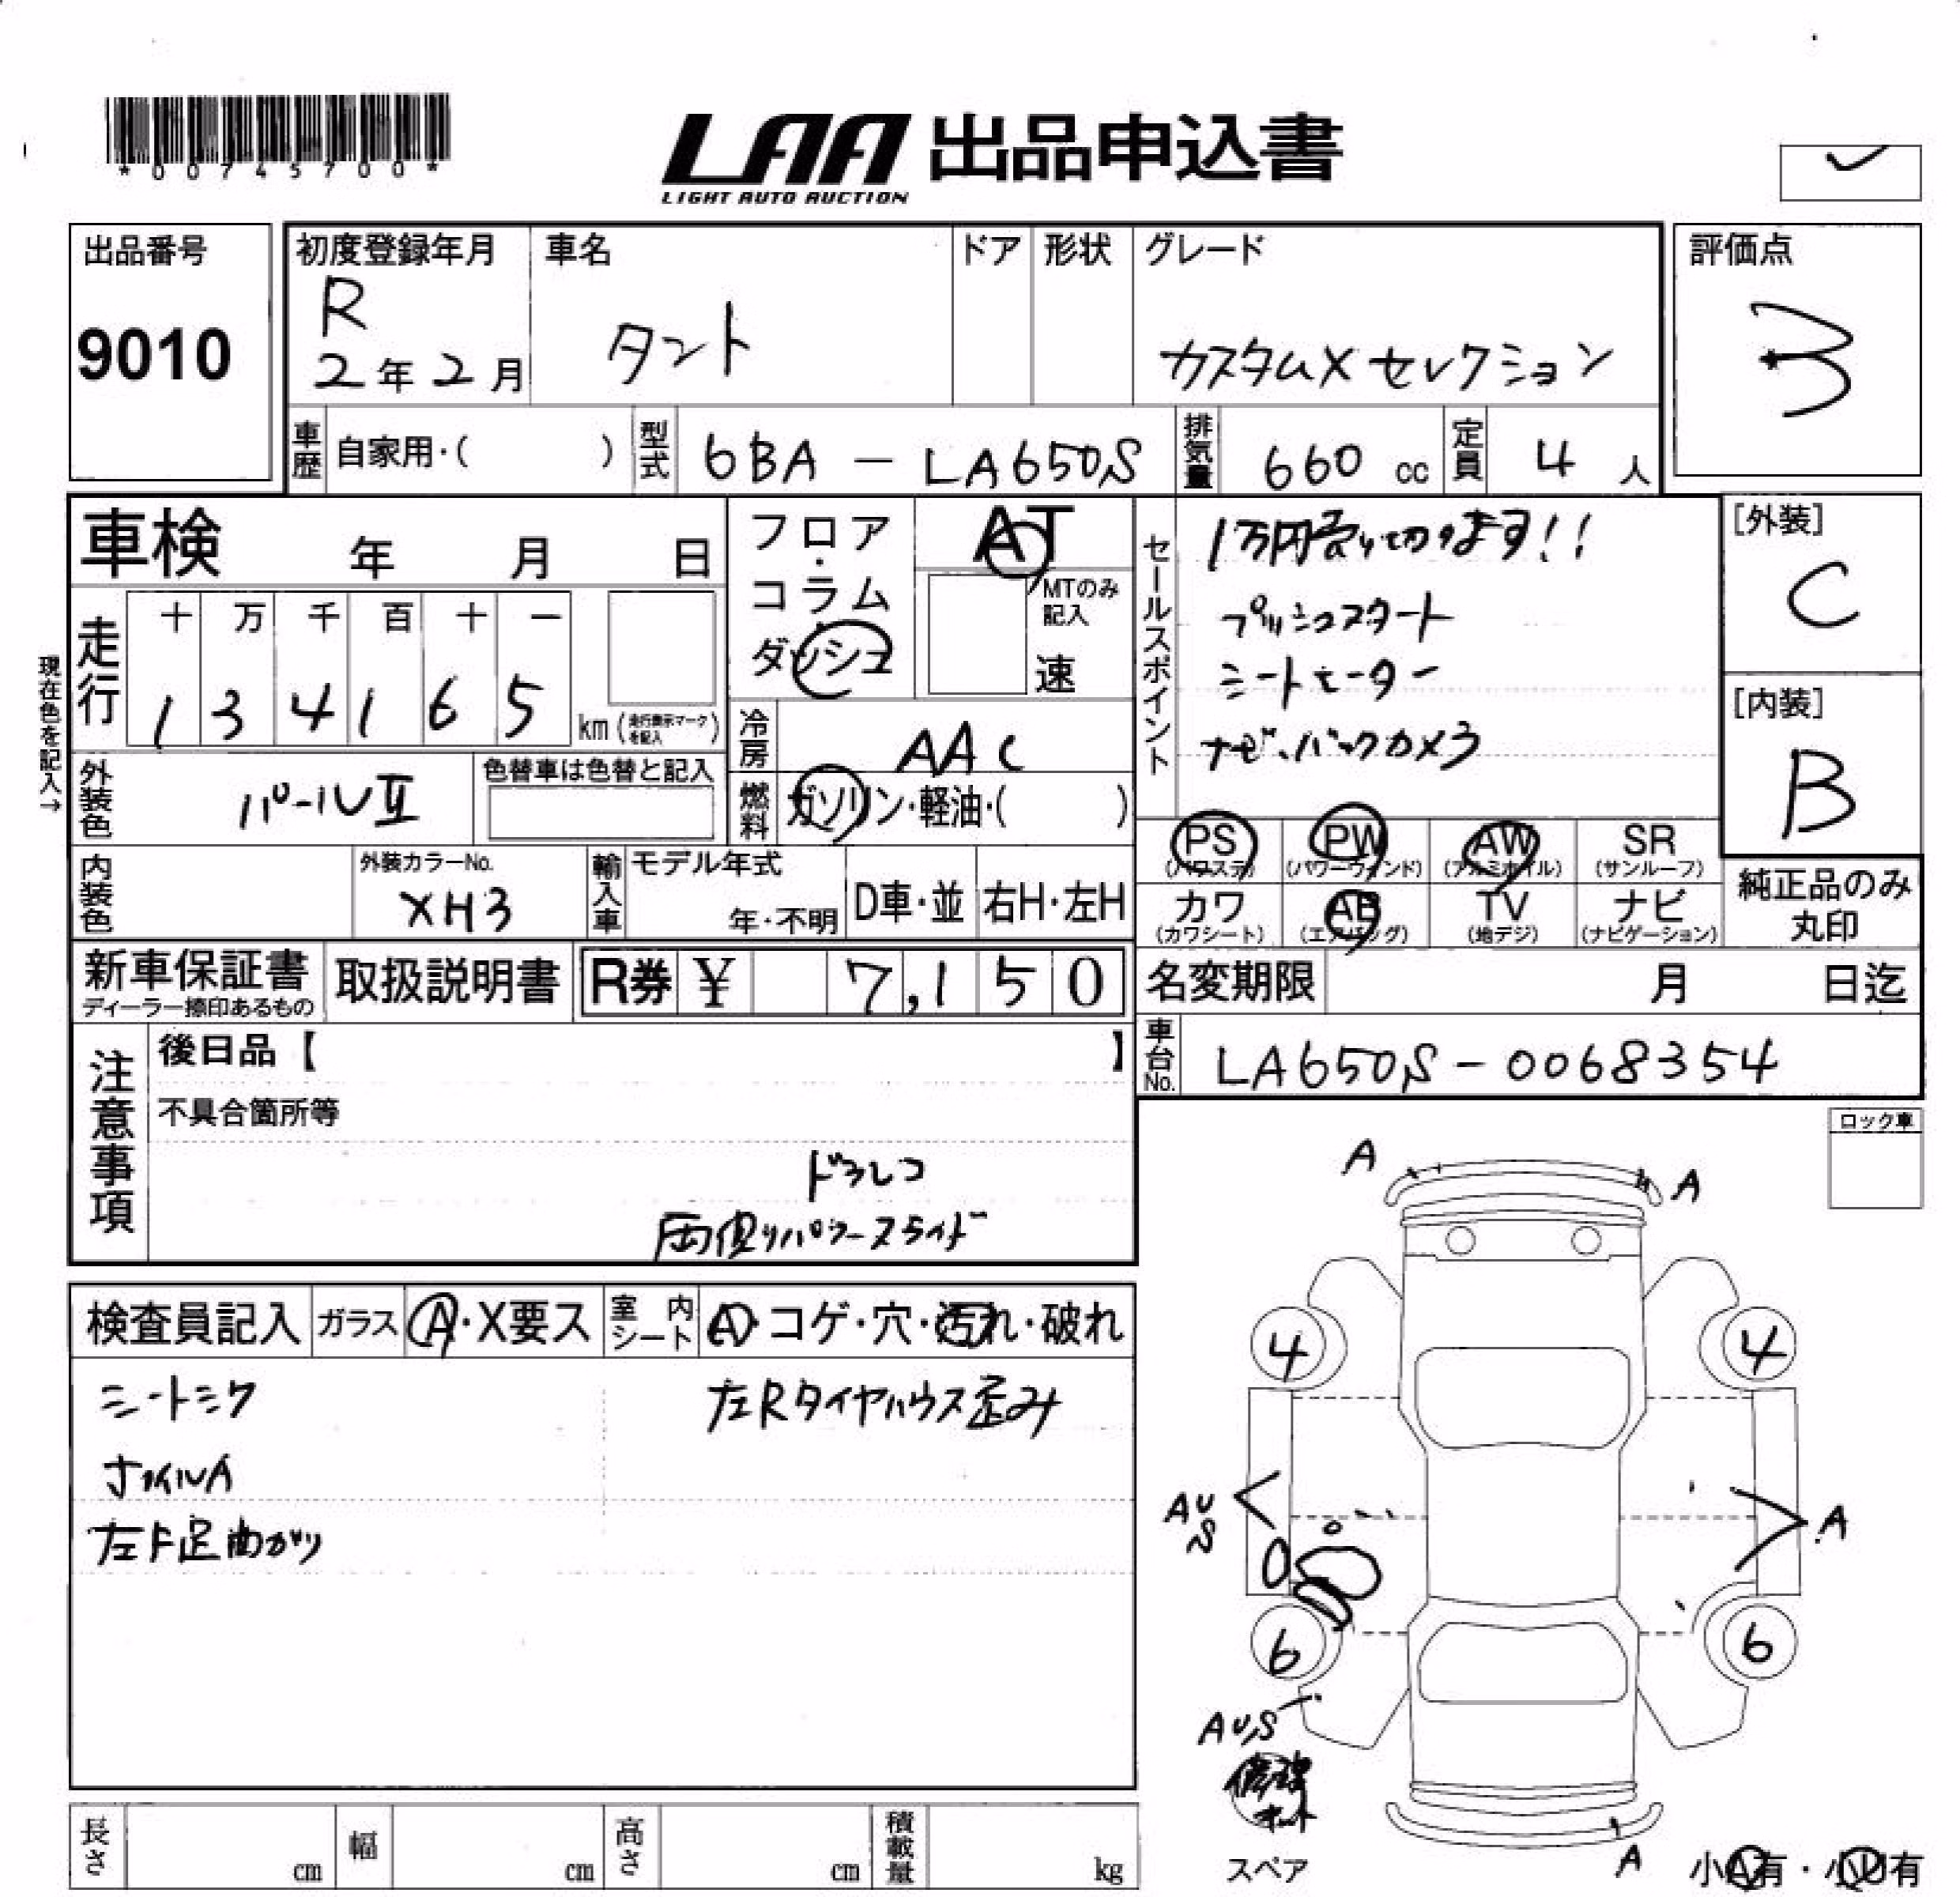 *00745700*
LAA 出品申込書
LIGHT AUTO AUCTION
出品番号
9010
初度登録年月
R
2年2月
車名
タント
ドア
形状
グレード
カスタムXセレクション
評価点
3
車歴
自家用・( )
型式
6BA - LA650S
排気量
660 cc
定員
4 人
車検 年 月 日
フロア・コラム・ダッシュ
AT
MTのみ記入
速
セールスポイント
1万円売り切ります!!
プッシュスタート
シートヒーター
ナビ、バックカメラ
[外装]
C
[内装]
B
現在色を記入→
走行
十 万 千 百 十 一
1 3 4 1 6 5
km (走行表示マークを記入)
冷房
AAC
外装色
パールII
色替車は色替と記入
燃料
ガソリン・軽油・( )
PS (パワステ)
PW (パワーウィンド)
AW (アルミホイル)
SR (サンルーフ)
カワ (カワシート)
AB (エアバッグ)
TV (地デジ)
ナビ (ナビゲーション)
純正品のみ丸印
内装色
外装カラーNo.
XH3
輸入車
モデル年式
年・不明
D車・並
右H・左H
新車保証書
ディーラー捺印あるもの
取扱説明書
R券 ¥ 7,150
名変期限 月 日迄
車台No.
LA650S-0068354
注意事項
後日品【 】
不具合箇所等
ドラレコ
両側パワースライド
ロック車
A
A
検査員記入
ガラス
A・X要ス
室内シート
A・コゲ・穴・汚れ・破れ
シートシワ
ホイルA
左F足曲がり
左Rタイヤハウス歪み
4
4
AU
S
A
6
6
AUS
修理
キット
スペア
A
小A有・小U有
長さ cm
幅 cm
高さ cm
積載量 kg